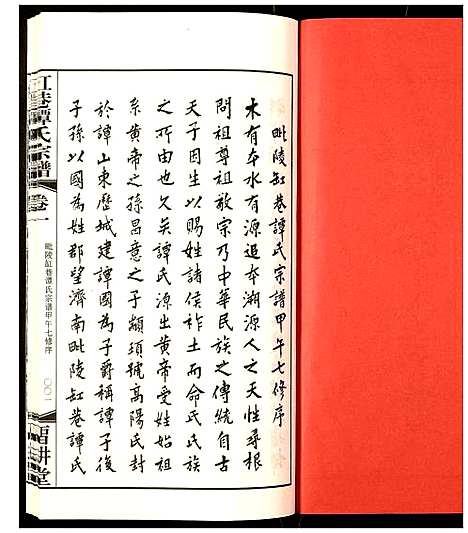 毗陵缸巷譚氏宗譜甲午七修序
木有本水有源追本溯源人之天性尋根
問祖尊祖敬宗乃中華民族之傳統自古
天子因生以賜姓諸侯祚土而命氏氏族
之所由也久矣譚氏源出黃帝受姓始祖
系黃帝之孫昌意之子顓頊號高陽氏封
於譚山東歷城建譚國為子爵稱譚子後
子孫以國為姓郡望濟南毗陵缸巷譚氏
缸巷譚氏宗譜
卷一
毗陵缸巷譚氏宗譜甲午七修序
〇〇一